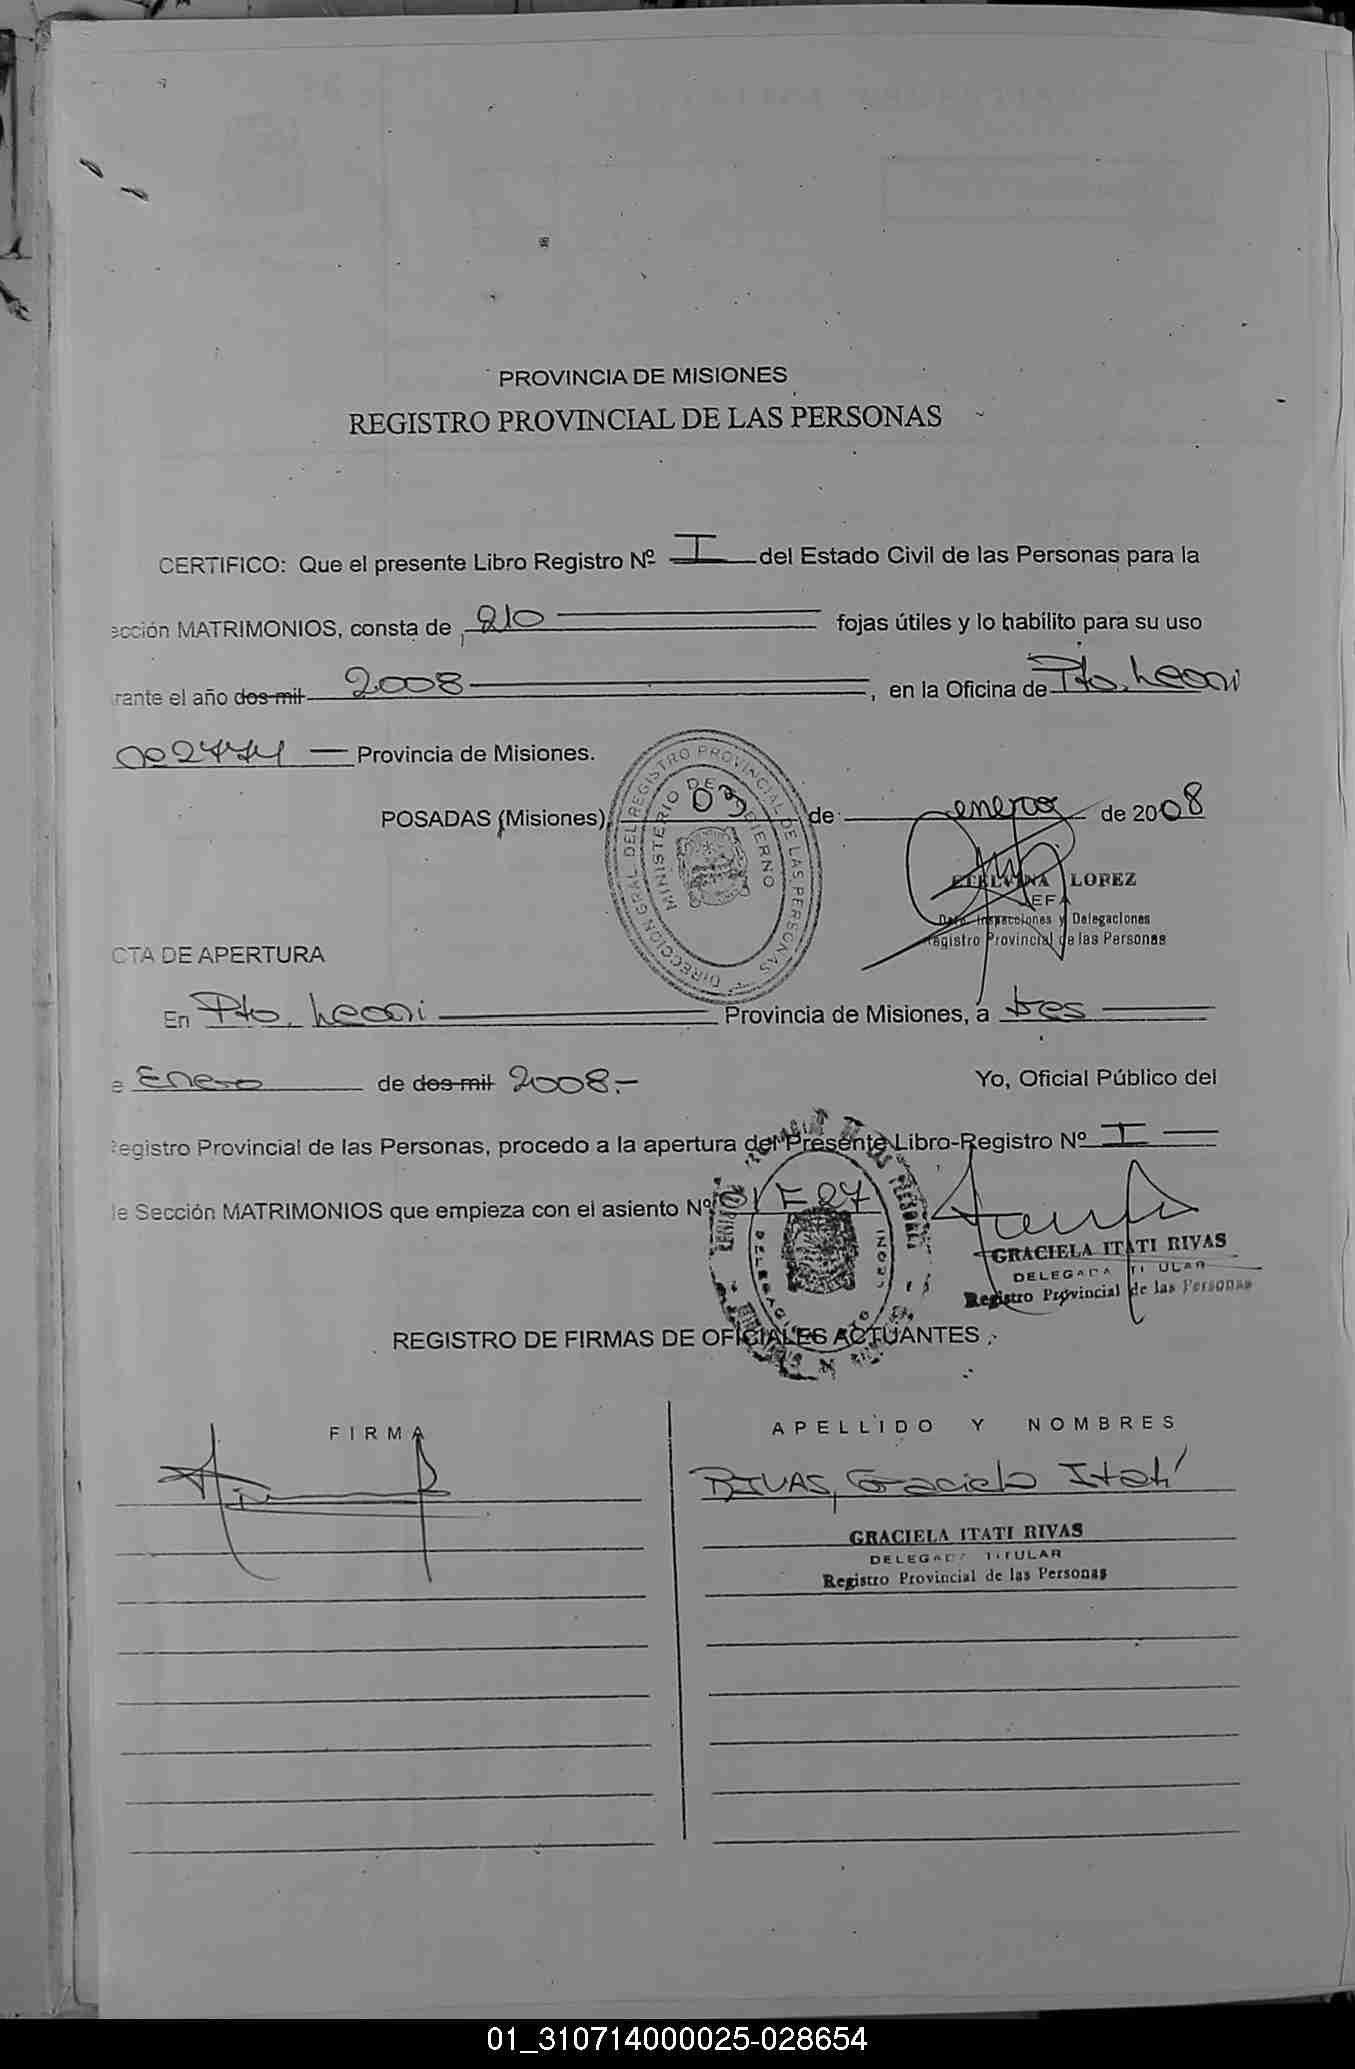 PROVINCIA DE MISIONES
REGISTRO PROVINCIAL DE LAS PERSONAS
CERTIFICO: Que el presente Libro Registro Nº I del Estado Civil de las Personas para la
ección MATRIMONIOS, consta de 210 fojas útiles y lo habilito para su uso
rante el año dos mil 2008, en la Oficina de Pto. Leoni
Provincia de Misiones.
POSADAS (Misiones), 03 de enero de 2008
DIRECCION GRAL DEL REGISTRO PROVINCIAL DE LAS PERSONAS
MINISTERIO DE GOBIERNO
ETELVINA LOPEZ
JEFA
Dpto. Inspecciones y Delegaciones
Registro Provincial de las Personas
CTA DE APERTURA
En Pto. Leoni Provincia de Misiones, a tres
e Enero de dos mil 2008.- Yo, Oficial Público del
Registro Provincial de las Personas, procedo a la apertura del Presente Libro-Registro Nº I
de Sección MATRIMONIOS que empieza con el asiento Nº 01 F 27
GRACIELA ITATI RIVAS
DELEGADA TITULAR
Registro Provincial de las Personas
REGISTRO DE FIRMAS DE OFICIALES ACTUANTES
FIRMA
APELLIDO Y NOMBRES
RIVAS, Graciela Itatí
GRACIELA ITATI RIVAS
DELEGADA TITULAR
Registro Provincial de las Personas
01_310714000025-028654